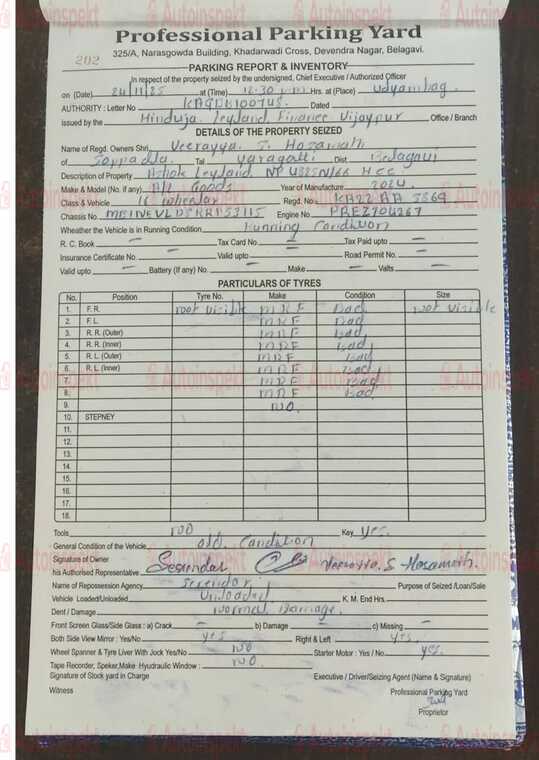 Professional Parking Yard
325/A, Narasgowda Building, Khadarwadi Cross, Devendra Nagar, Belagavi.
202
PARKING REPORT & INVENTORY
In respect of the property seized by the undersigned, Chief Executive / Authorized Officer
on (Date) 24/11/25 at (Time) 12.30 p.m Hrs. at (Place) Udyambag
AUTHORITY : Letter No Dated
issued by the Hinduja Leyland Finance Vijaypur Office / Branch
DETAILS OF THE PROPERTY SEIZED
Name of Regd. Owners Shri Veerayya S. Hosamath
of Tal Yaragatti Dist Belagavi
Description of Property Ashok Leyland
Make & Model (No. if any) Goods Year of Manufacture 2024
Class & Vehicle 16 wheelar Regd. No. KA22 AA
Chassis No Engine No
Wheather the Vehicle is in Running Condition Running Condition
R. C. Book – Tax Card No. – Tax Paid upto –
Insurance Certificate No. – Valid upto – Road Permit No. –
Valid upto – Battery (If any) No. – Make – Valts –
PARTICULARS OF TYRES
No. Position Tyre No. Make Condition Size
1. F. R. noot visible MRF Bad noot visible
2. F L. MRF Bad
3. R. R. (Outer) MRF Bad
4. R. R. (Inner) MRF Bad
5. R. L. (Outer) MRF Bad
6. R. L. (Inner) MRF Bad
7. MRF Bad
8. MRF Bad
9. NO.
10. STEPNEY
11.
12.
13.
14.
15.
16.
17.
18.
Tools NO Key yes.
General Condition of the Vehicle old. Condition
Signature of Owner
his Authorised Representative Veerayya. S. Hosamath.
Name of Repossession Agency Purpose of Seized /Loan/Sale
Vehicle Loaded/Unloaded Unloaded K. M. End Hrs.
Dent / Damage Normal Damage.
Front Screen Glass/Side Glass : a) Crack – b) Damage – c) Missing –
Both Side View Mirror : Yes/No yes Right & Left yes.
Wheel Spanner & Tyre Liver With Jock Yes/No NO Starter Motor : Yes / No yes.
Tape Recorder, Speker,Make Hyudraulic Window : NO
Signature of Stock yard in Charge Executive / Driver/Seizing Agent (Name & Signature)
Witness Professional Parking Yard
Proprietor
Autoinspekt